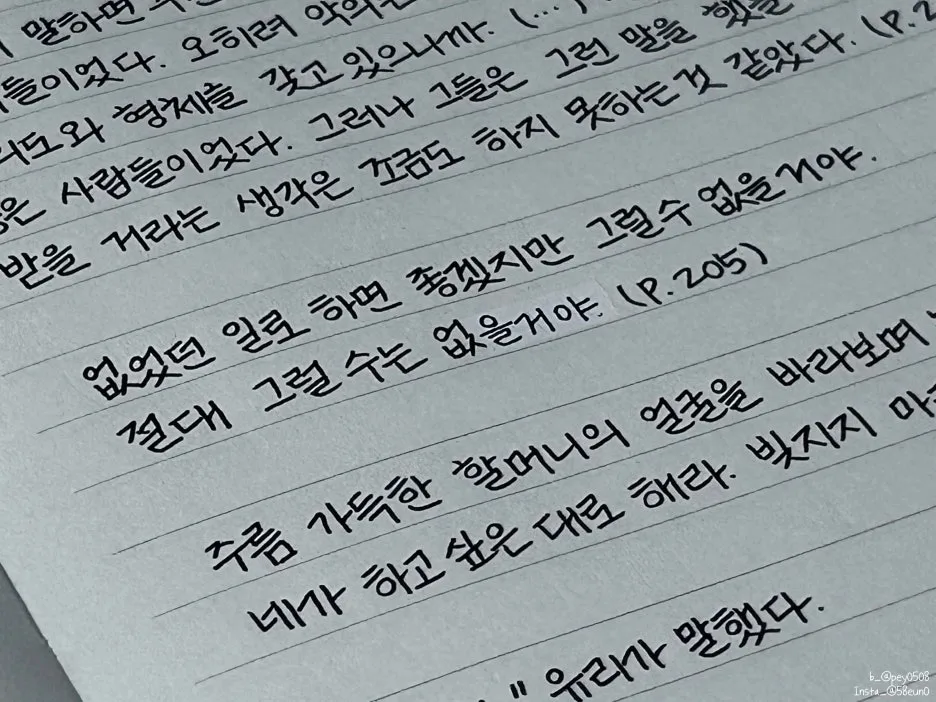 말하면
들이었다. 오히려 악의는
와 형제를 갖고 있으니까. (...)
사람들이었다. 그러나 그들은 그런 말을 했을
받을 거라는 생각은 조금도 하지 못하는 것 같았다. (P.2
없었던 일로 하면 좋겠지만 그럴 수 없을거야.
절대 그럴 수는 없을거야. (P.205)
주름 가득한 할머니의 얼굴을 바라보며
네가 하고 싶은 대로 해라. 빚지지
" 유라가 말했다.
b_@pey0508
Insta_@58eun0